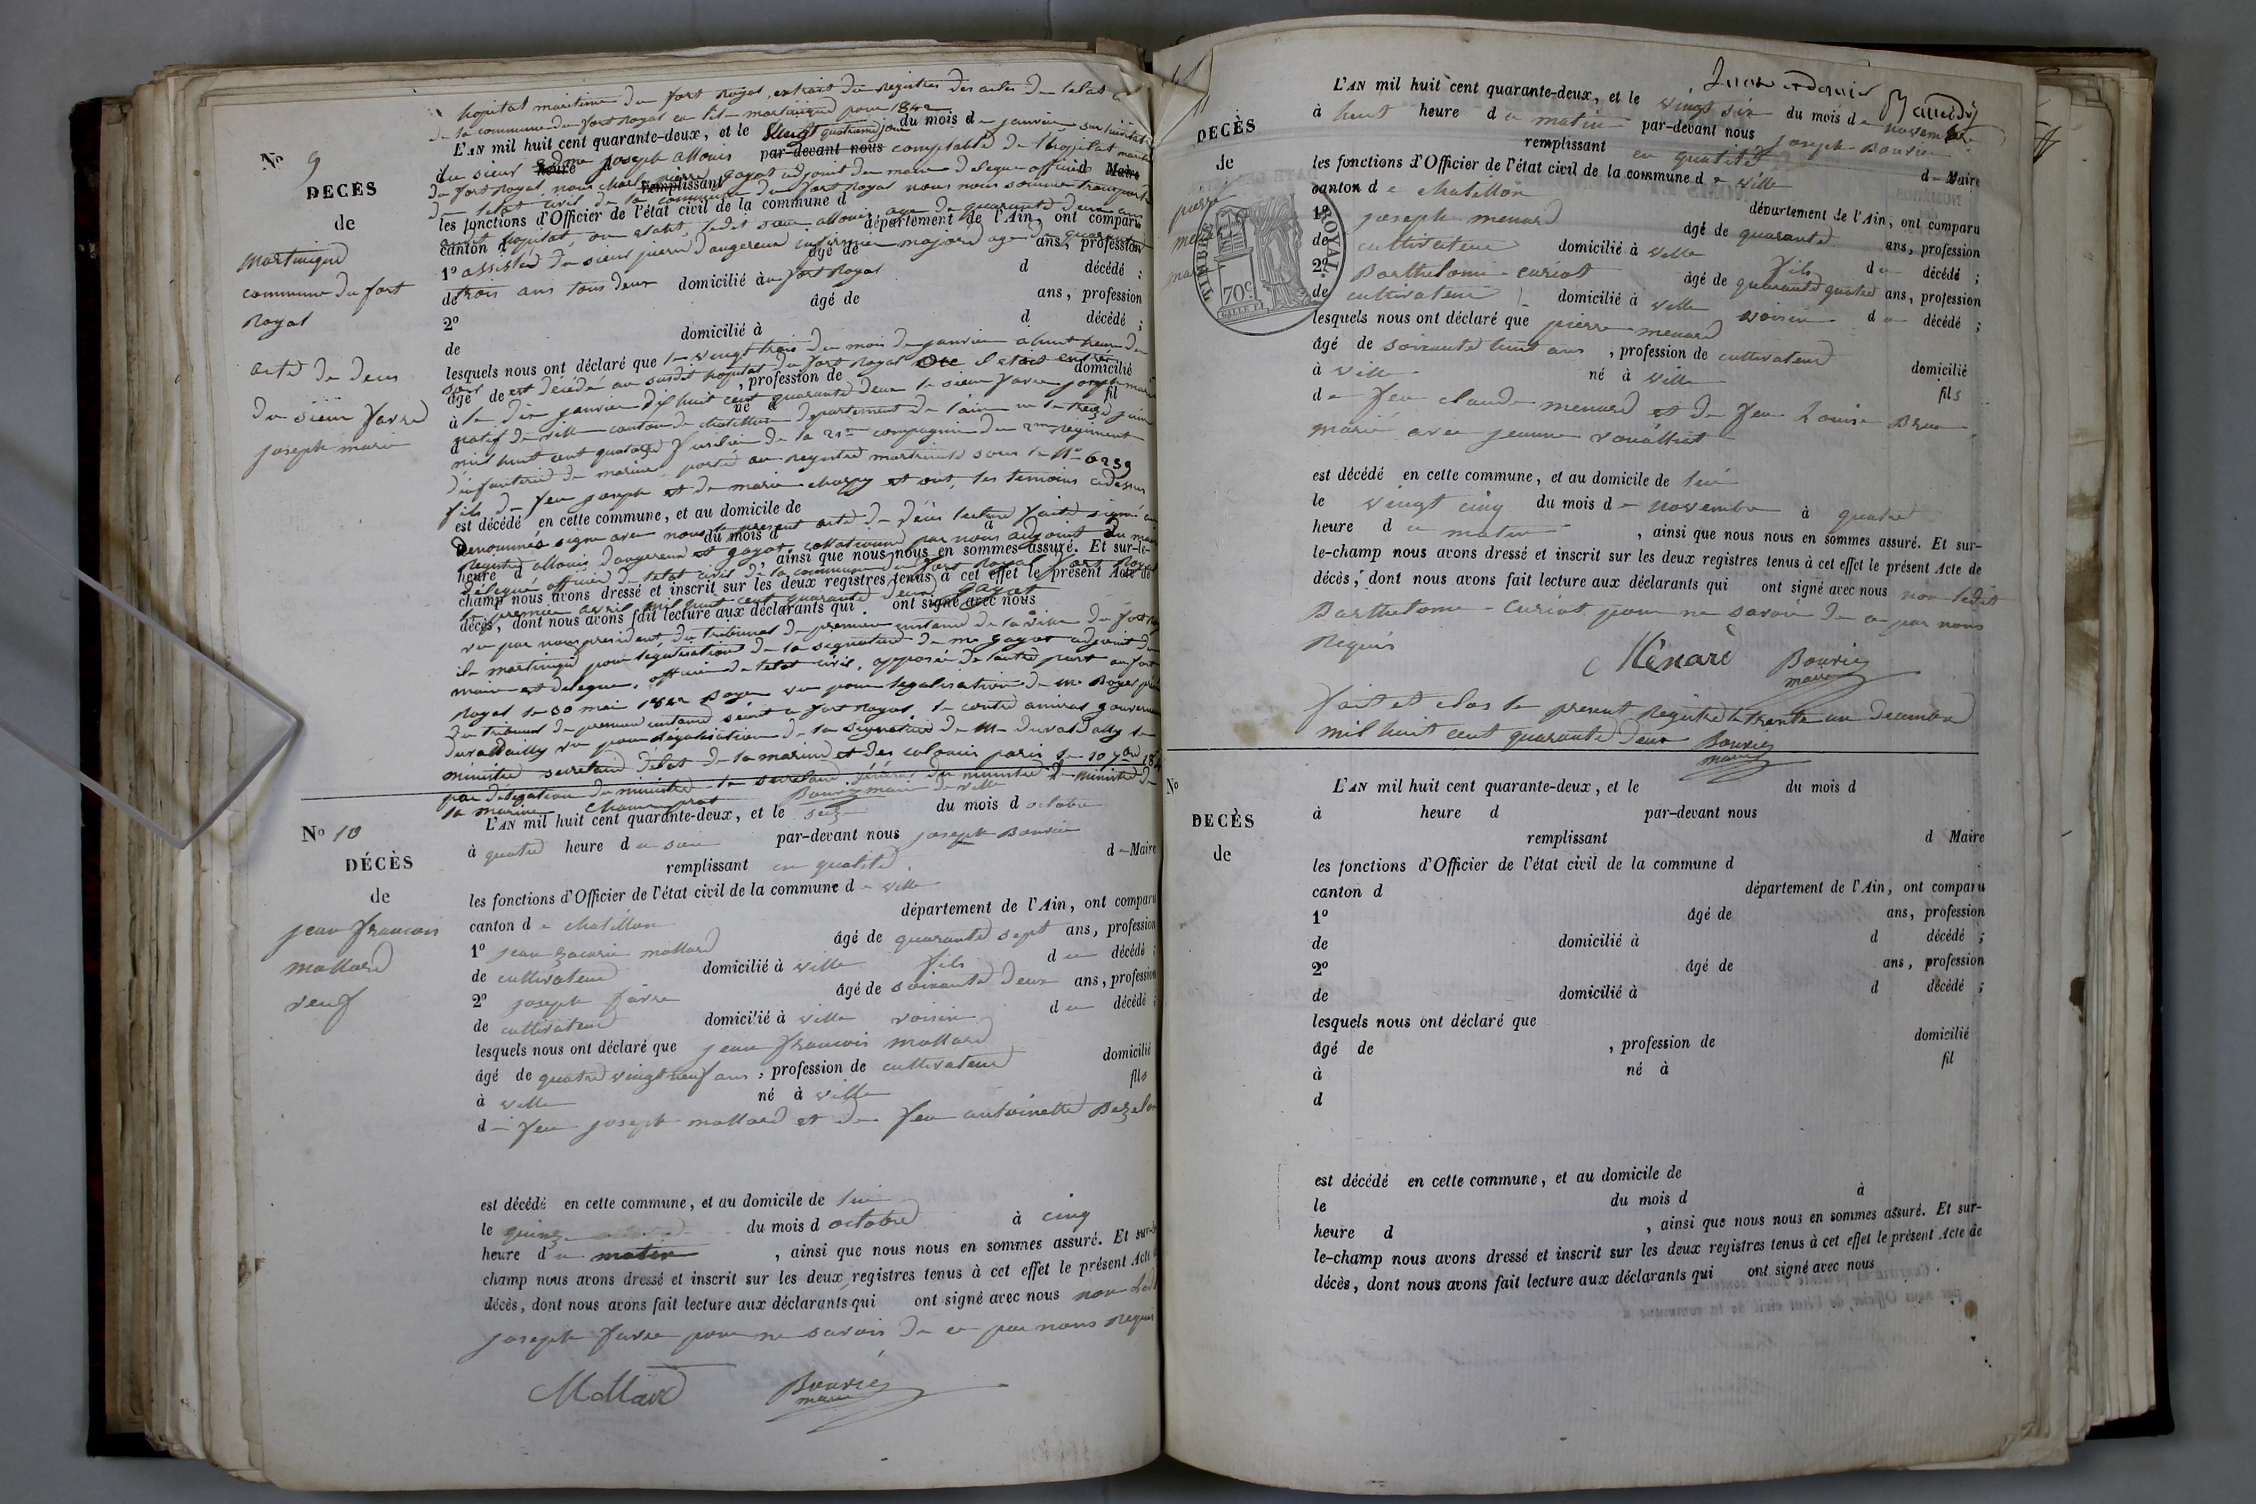 hopital maritime du fort Royal, extrait du registre des actes de letat
de la commune du fort Royal en lile martinique pour 1842
L'AN mil huit cent quarante-deux, et le vingt quatrieme jour du mois de janvier sur
du sieur joseph allouis par-devant nous comptable de l'hopital
du fort Royal, nous gayot adjoint du maire delegue officier Maire
de letat civil de la commune du fort Royal nous nous somme transporté
remplissant
les fonctions d'Officier de l'état civil de la commune d
canton d département de l'Ain, ont comparu
1º assisté du sieur pierre dangereux infirmier majord agé de quarante ans, profession
de trois ans tous deux domicilié à au fort Royal d décédé ;
2º âgé de ans, profession
de domicilié à d décédé ;
Nº 9
DÉCÈS
de
martinique
commune du fort
Royal
acte de deces
du sieur favre
joseph marie
lesquels nous ont déclaré que le vingt trois du mois de janvier a huit heure du
soir est décédé au susdit hopital du fort Royal ou il etait entré
âgé de , profession de domicilié
le dix janvier mil huit cent quarante deux le sieur favre joseph marie
à né à fil
natif de ville canton de chatillon departement de l'ain ne le treize juin
mil huit cent quatorze fusilier de la 21me compagnie du 2me regiment
d'infanterie de marine porté au registre matricule sous le Nº 6239
fils de feu joseph et de marie charpy et ont, les temoins cidessus
est décédé en cette commune, et au domicile de
denommés signe avec nous le present acte de décès lecture faite signé au
du mois d à
registre allouis dangereux et gayot collationné par nous adjoint du maire
heure d , ainsi que nous nous en sommes assuré. Et sur-le-
delegué officier de letat civil de la commune du fort Royal fort Royal
champ nous avons dressé et inscrit sur les deux registres tenus à cet effet le présent Acte de
le premier avril mil huit cent quarante deux gayot
décès, dont nous avons fait lecture aux déclarants qui ont signé avec nous
vu par nous president du tribunal de premier instance de la ville du fort
ile martinique pour legalisation de la signature de mr gayot adjoint du
maire et delegue, officier de letat civil, apposé de lautre part au fort
Royal le 30 mai 1842 Boyer vu pour legalisation de mr Boyer
du tribunal de premier instance séant a fort Royal, le contre amiral gouverneur
duvaldailly vu pour légalisation de la signature de Mr duvaldailly le
ministre secretaire d'état de la marine et des colonies paris le 10 7bre
par delegation du ministre le secretaire général du ministre de
la marine Bouvier maire de ville
Nº 10
DÉCÈS
de
jean francois
mollard
veuf
L'AN mil huit cent quarante-deux, et le seize du mois d octobre
à quatre heure d u soir par-devant nous joseph Bouvier
remplissant en qualité d e Maire
les fonctions d'Officier de l'état civil de la commune d e ville
canton d e chatillon département de l'Ain, ont comparu
1º jean mollard âgé de quarante sept ans, profession
de cultivateur domicilié à ville fils d u décédé ;
2º joseph favre âgé de soixante deux ans, profession
de cultivateur domicilié à ville voisin d u décédé ;
lesquels nous ont déclaré que jean francois mollard
âgé de quatre vingt neuf ans , profession de cultivateur domicilié
à ville né à ville fils
d e feu joseph mollard et de feu antoinette
est décédé en cette commune, et au domicile de lui
le quinze du mois d octobre à cinq
heure d u matin , ainsi que nous nous en sommes assuré. Et sur-le-
champ nous avons dressé et inscrit sur les deux registres tenus à cet effet le présent Acte
décès, dont nous avons fait lecture aux déclarants qui ont signé avec nous non ledit
joseph favre pour ne savoir de ce par nous requis
Mollard Bouvier
maire
DÉCÈS
de
pierre
TIMBRE ROYAL
70 c.
L'AN mil huit cent quarante-deux, et le vingt six du mois d e novembre
à huit heure d u matin par-devant nous joseph Bouvier
remplissant en qualité d e Maire
les fonctions d'Officier de l'état civil de la commune d e ville
canton d e chatillon département de l'Ain, ont comparu
1º joseph menard âgé de quarante ans, profession
de cultivateur domicilié à ville fils d u décédé ;
2º Barthelomi curiat âgé de quarante quatre ans, profession
de cultivateur domicilié à ville voisin d u décédé ;
lesquels nous ont déclaré que pierre menard
âgé de soixante huit ans , profession de cultivateur domicilié
à ville né à ville fils
d e feu claude menard et de feu Louise
marié avec jeanne
est décédé en cette commune, et au domicile de lui
le vingt cinq du mois d e novembre à quatre
heure d u matin , ainsi que nous nous en sommes assuré. Et sur-
le-champ nous avons dressé et inscrit sur les deux registres tenus à cet effet le présent Acte de
décès, dont nous avons fait lecture aux déclarants qui ont signé avec nous non ledit
Barthelome curiat pour ne savoir de ce par nous
requis
Ménard Bouvier
maire
fait et clos le present registre le trente un decembre
mil huit cent quarante deux Bouvier
maire
Nº
DÉCÈS
de
L'AN mil huit cent quarante-deux, et le du mois d
à heure d par-devant nous
remplissant d Maire
les fonctions d'Officier de l'état civil de la commune d
canton d département de l'Ain, ont comparu
1º âgé de ans, profession
de domicilié à d décédé ;
2º âgé de ans, profession
de domicilié à d décédé ;
lesquels nous ont déclaré que
âgé de , profession de domicilié
à né à fil
d
est décédé en cette commune, et au domicile de
le du mois d à
heure d , ainsi que nous nous en sommes assuré. Et sur-
le-champ nous avons dressé et inscrit sur les deux registres tenus à cet effet le présent Acte de
décès, dont nous avons fait lecture aux déclarants qui ont signé avec nous